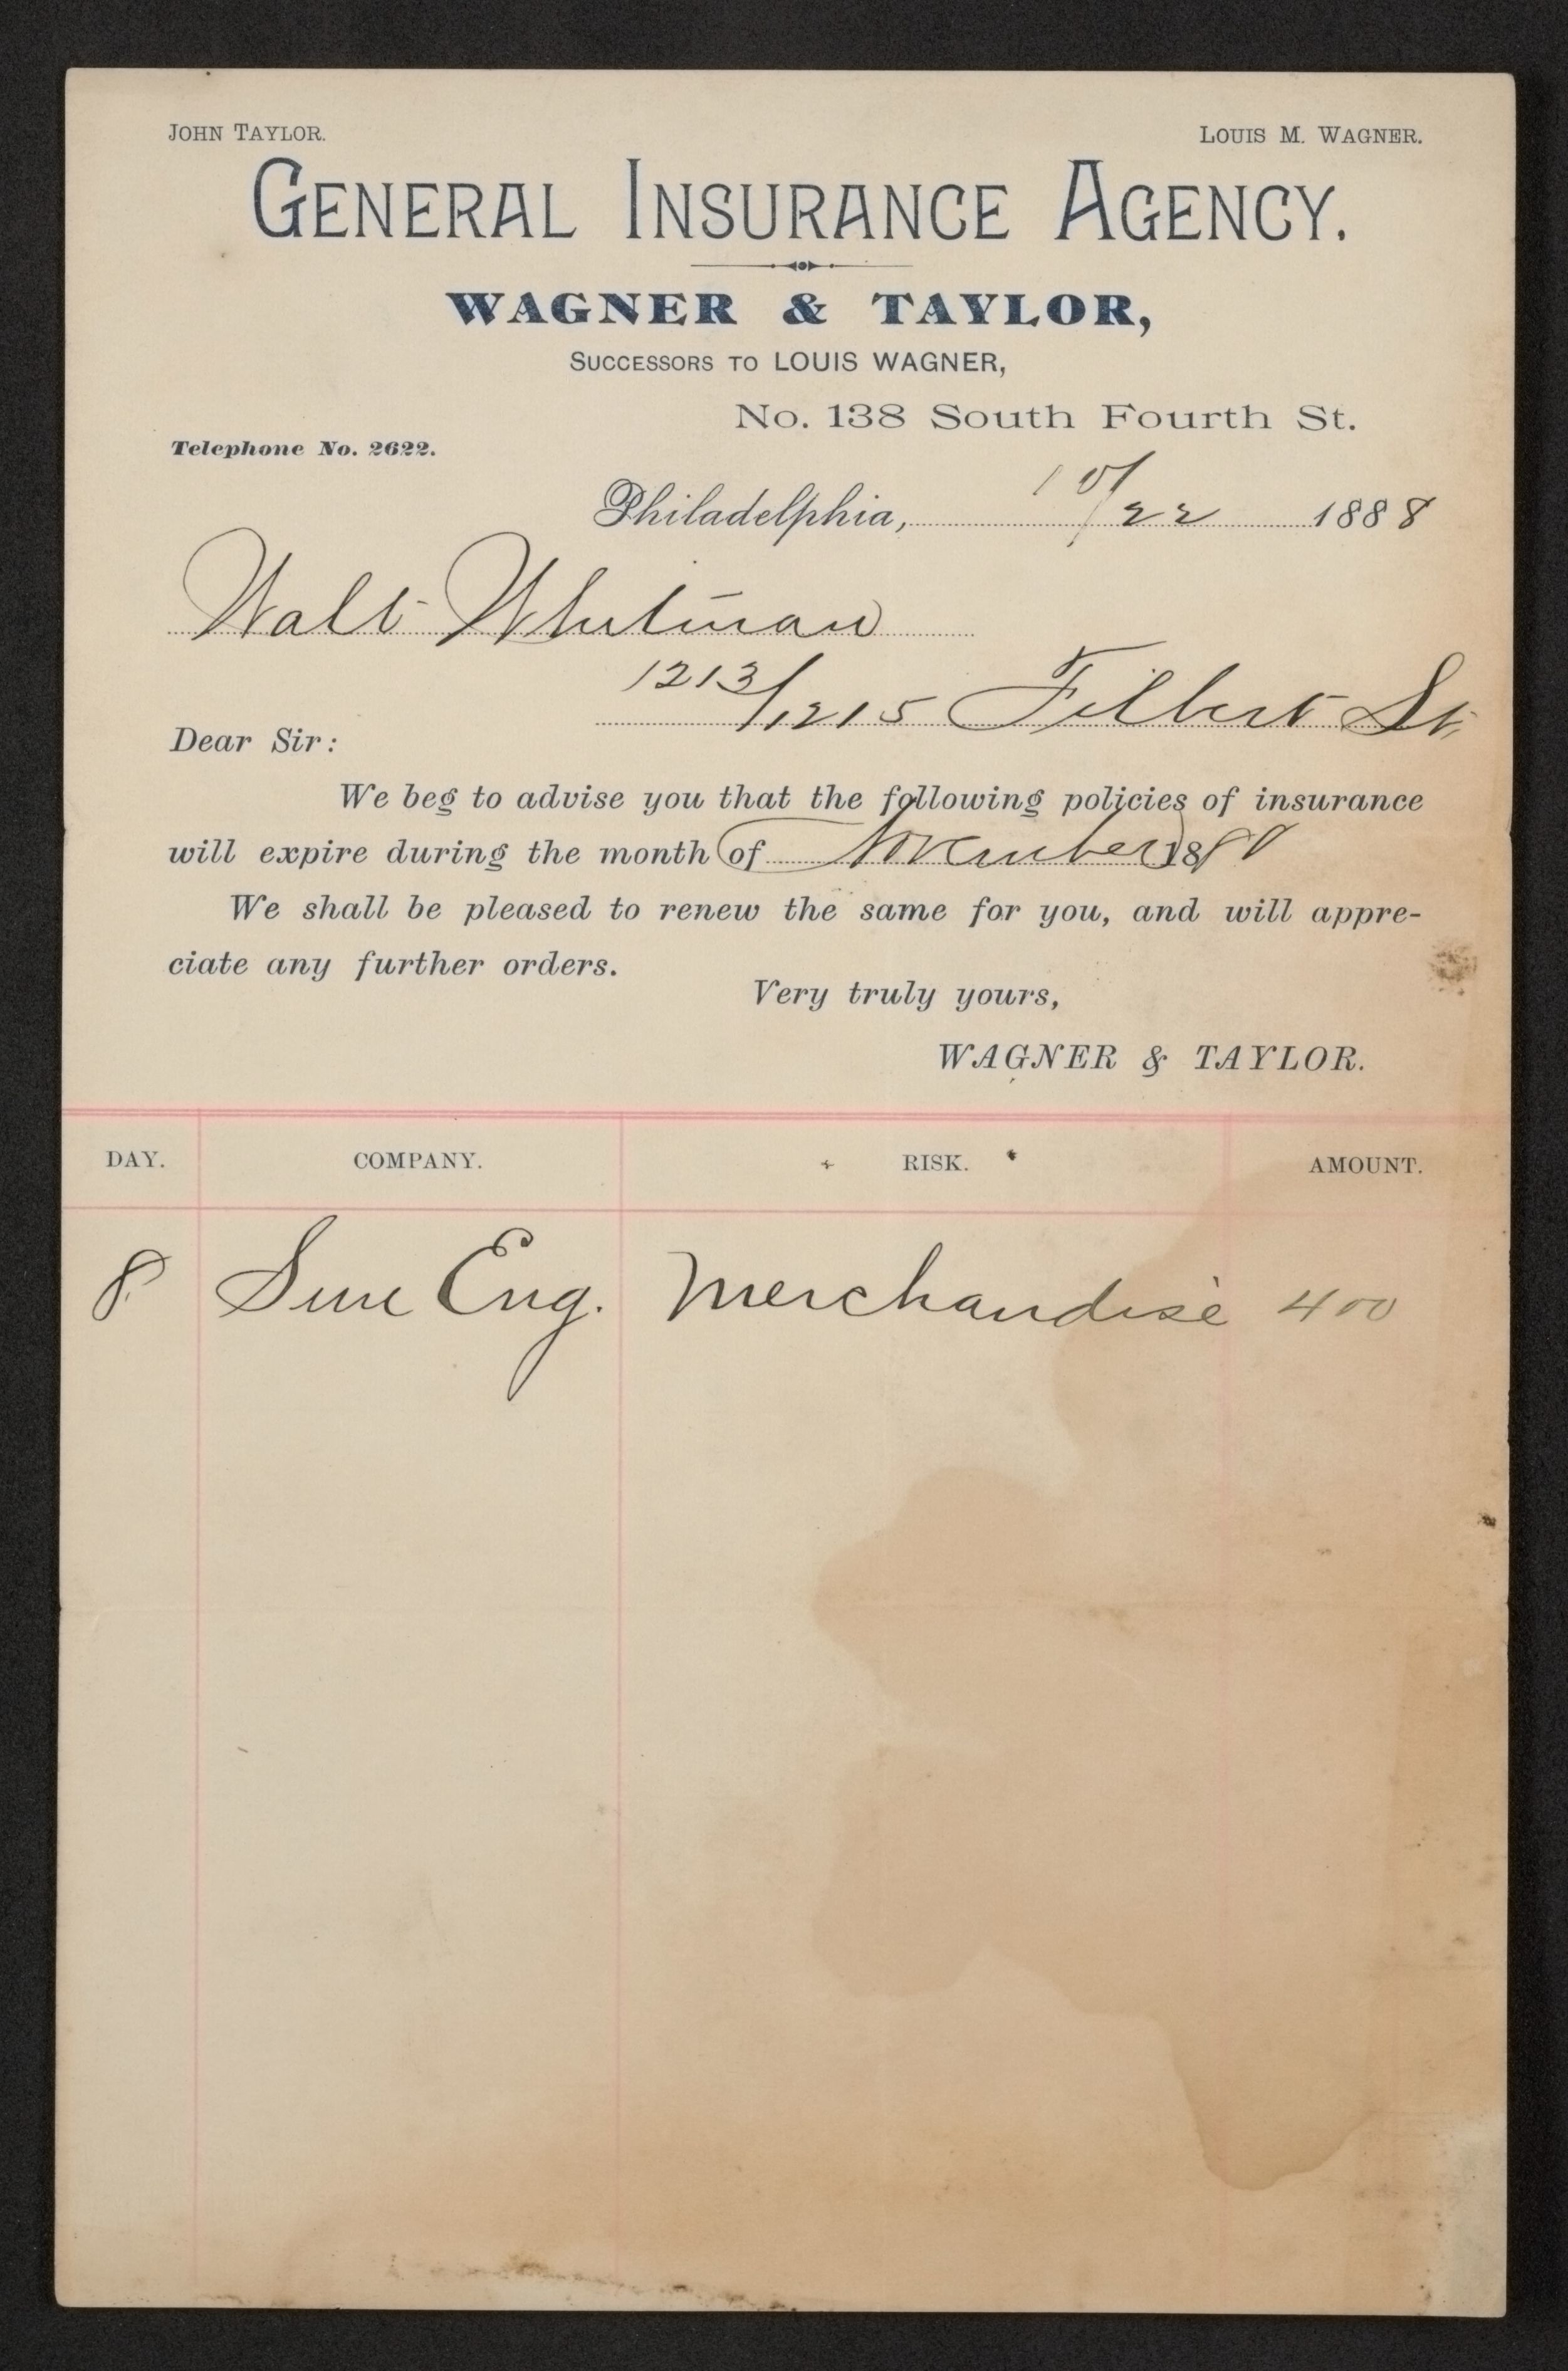 JOHN TAYLOR. LOUIS M. WAGNER.
GENERAL INSURANCE AGENCY.
WAGNER & TAYLOR,
SUCCESSORS TO LOUIS WAGNER,
No. 138 South Fourth St.
Telephone No. 2622.
Philadelphia, 10/22 1888
Walt Whitman
1213/1215 Filbert St.
Dear Sir:
We beg to advise you that the following policies of insurance
will expire during the month of November 1888
We shall be pleased to renew the same for you, and will appre-
ciate any further orders.
Very truly yours,
WAGNER & TAYLOR.
DAY. COMPANY. RISK. AMOUNT.
8. Sun Eng. Merchandise 400